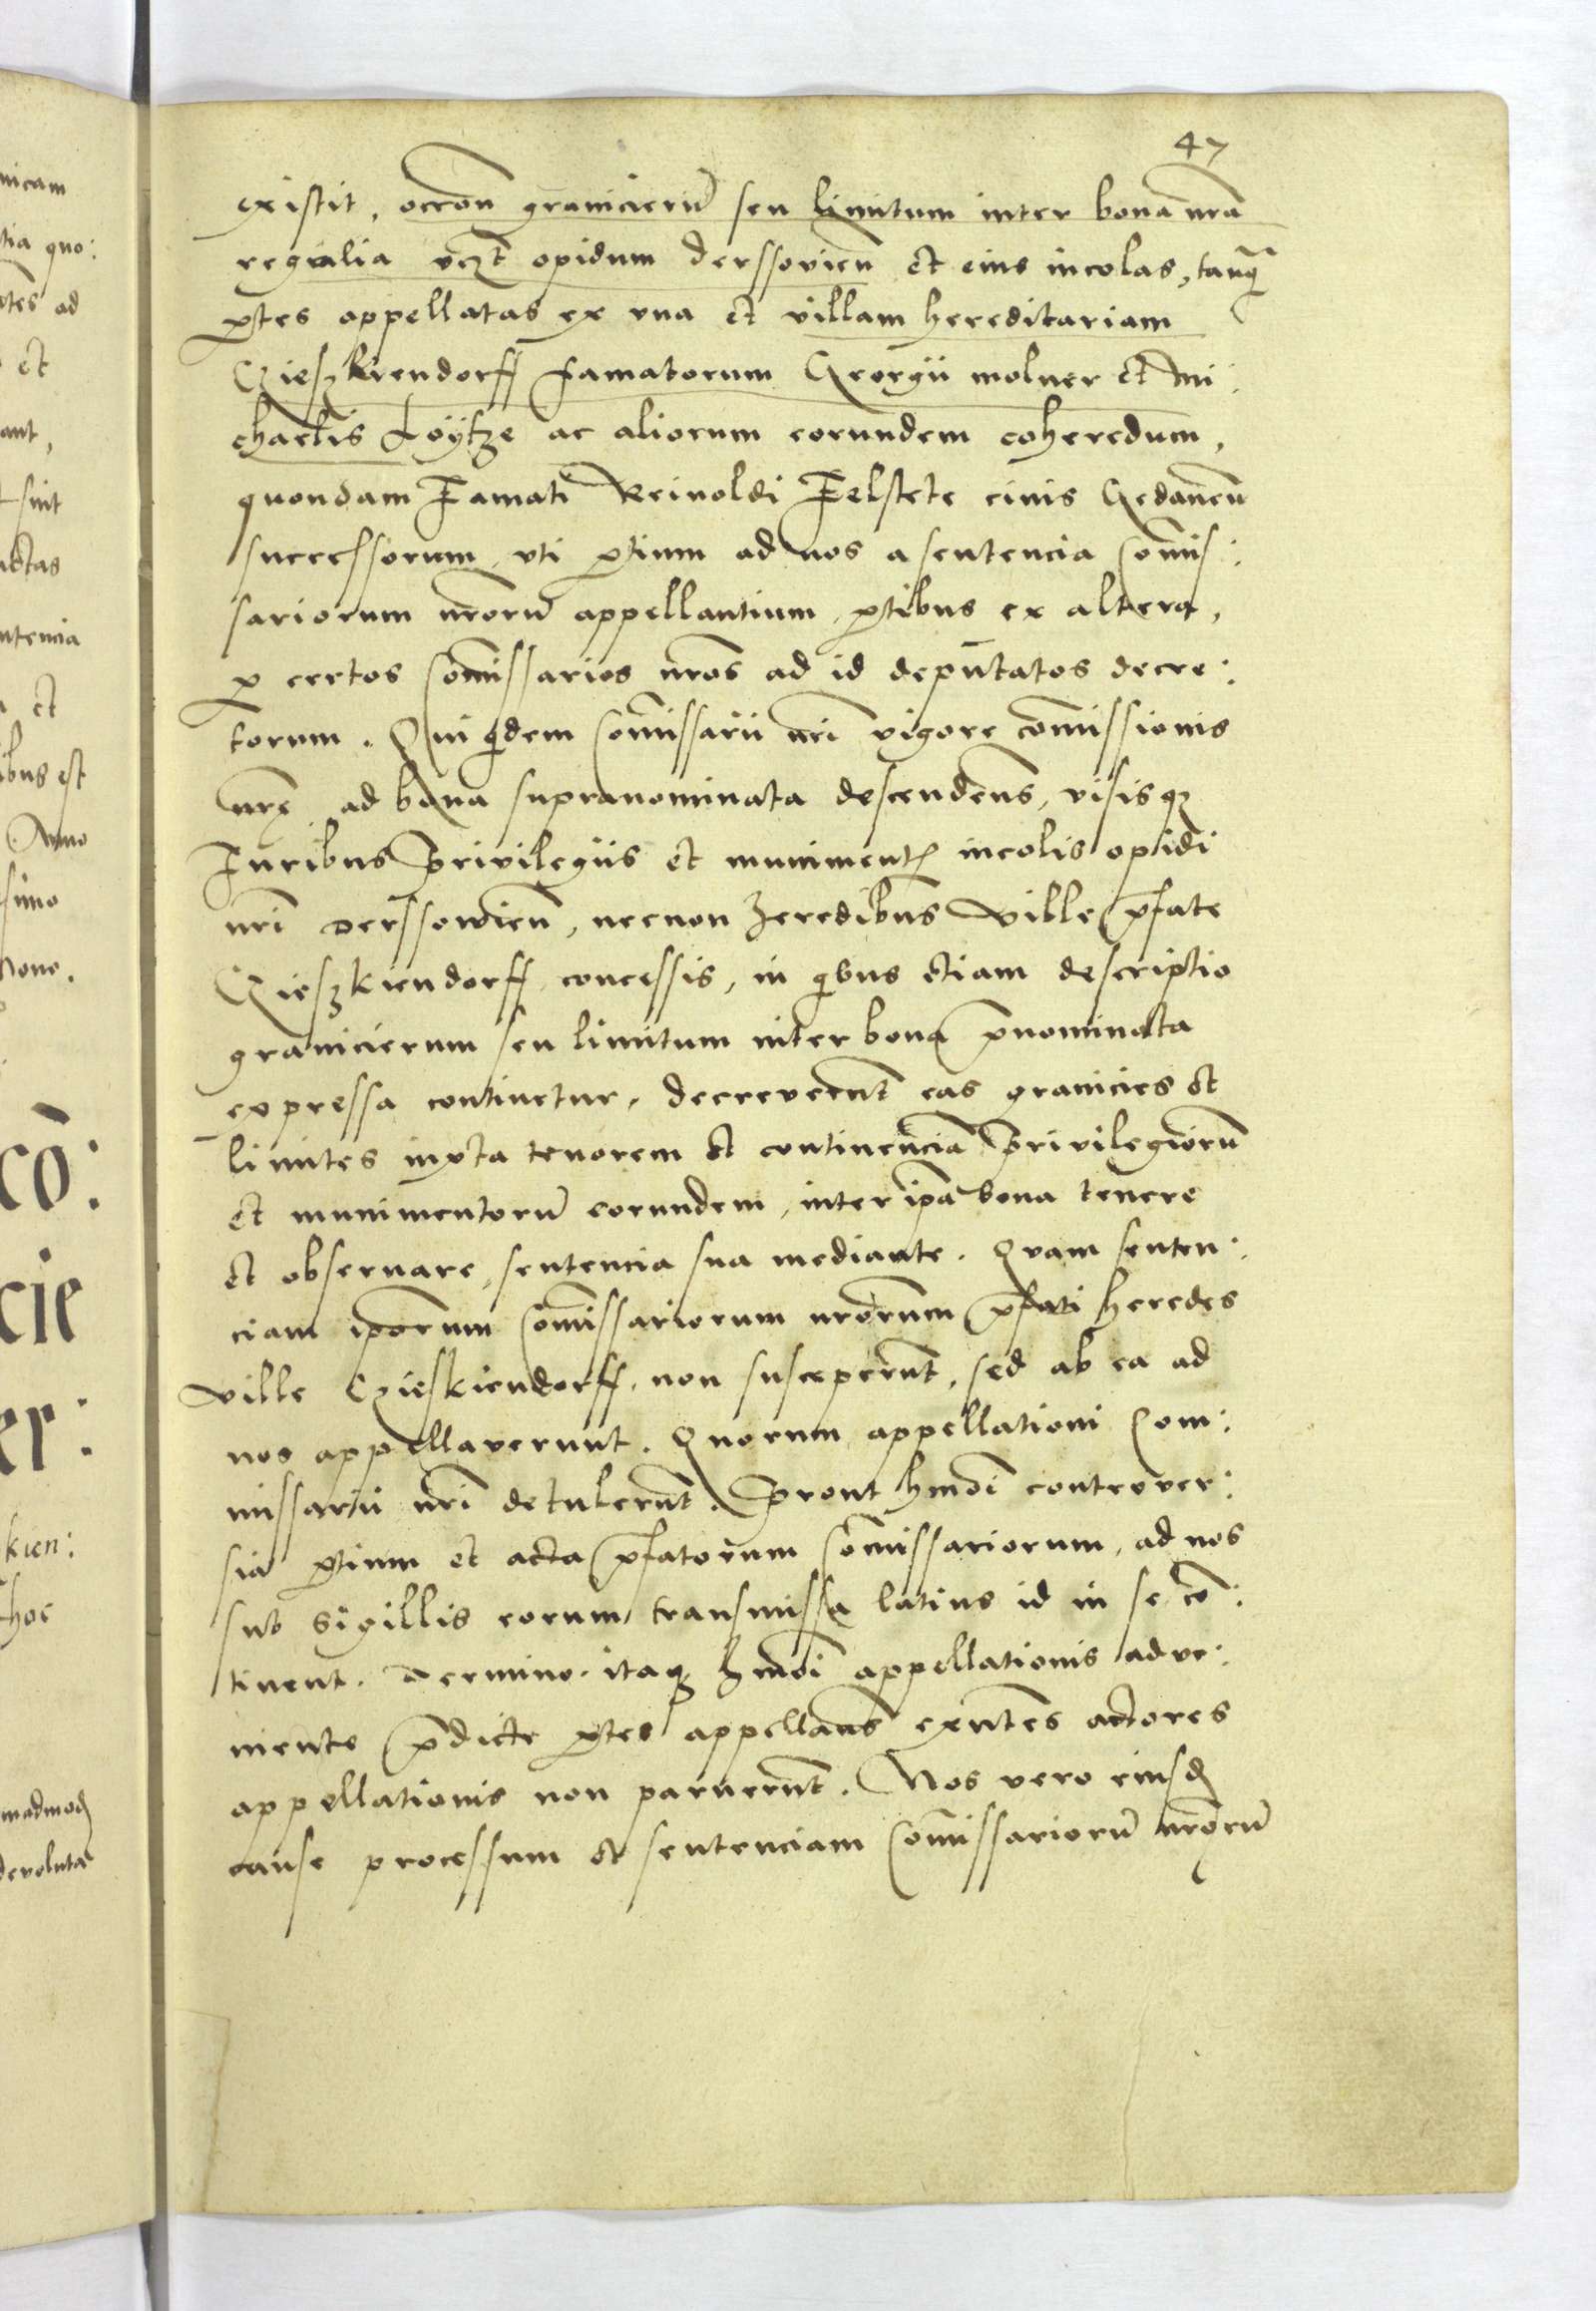 47
existit, occõn granicierũ seu limitum inter bona nrã
regialia vcz̃t opidum derssouieñ et eius incolas, tanq̃
ptes appellatas ex vna et villam hereditariam
Czieszkiendorff famatorum Georgii molner et mi:
chaelis Loÿtze ac aliorum eorundem coheredum,
quondam Famati Reinoldi Felstete ciuis Gedaneñ
successorum, vti ptium ad nos a sentencia Com̃is:
sariorum nrõrũ appellantium, ptibus ex altera,
p certos Com̃issarios nrõs ad id deputatos decre:
torum. Qui qdem Com̃issarii nrĩ vigore com̃issionis
nrẽ ad bona supranominata descendeñs, visisqz
Iuribus Priuilegiis et munimentꝭ incolis opidi
nrĩ derssowieñ, necnon Heredibus Ville p̃fate
Czieszkiendorff concessis, in qbus etiam descriptio
granicierum seu limitum inter bona p̃nominata
expressa continetur, decreuerũt eas granicies et
limites iuxta tenorem et continenciã Priuilegiorũ
et munimentorũ eorundem, inter ipã bona tenere
et obseruare, sentencia sua mediante. Quam senten:
ciam ipõrum Com̃issariorum nrõrum p̃fati heredes
ville Czieskiendorff, non susceperũt, sed ab ea ad
nos appellauerunt. Quorum appellationi Com:
missarii nrĩ detulerũt. Prout hmõi controuer:
sia ptium et acta p̃fatorum Com̃issariorum, ad nos
sub sigillis eorum transmissa latius id in se cõ:
tinent. Termino itaqz hmõi appellationis adue:
niente p̃dicte ptes appellañs exñtes actores
appellationis non paruerũt. Nos vero eiusdꝭ
cause processum et sentenciam Com̃issariorũ nrõrũ